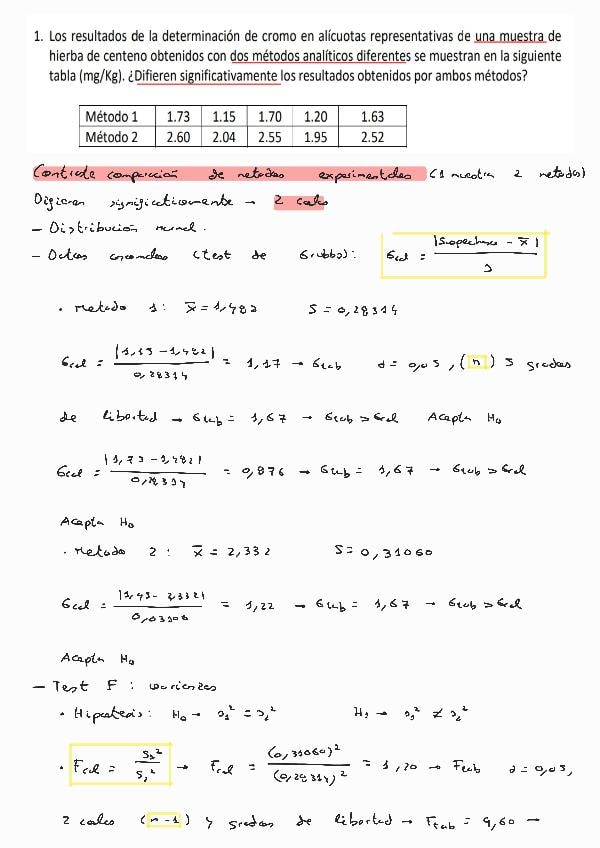 1. Los resultados de la determinación de cromo en alícuotas representativas de una muestra de
hierba de centeno obtenidos con dos métodos analíticos diferentes se muestran en la siguiente
tabla (mg/Kg). ¿Difieren significativamente los resultados obtenidos por ambos métodos?
Método 1 1.73 1.15 1.70 1.20 1.63
Método 2 2.60 2.04 2.55 1.95 2.52
Contraste comparación de metodos experimentales (1 muestra 2 metodos)
Difieran significativamente → 2 colas
– Distribución normal.
– Datos anomalos (test de Grubbs): Gcal = |Sospechoso - x̄| / s
• Metodo 1: x̄ = 1,482 S = 0,28314
Gcal = |1,15 - 1,482| / 0,28314 = 1,17 → Gtab α = 0,05, (n) 5 grados
de libertad → Gtab = 1,67 → Gtab > Gcal Acepta H₀
Gcal = |1,73 - 1,482| / 0,28314 = 0,876 → Gtab = 1,67 → Gtab > Gcal
Acepta H₀
• Metodo 2: x̄ = 2,332 S = 0,31060
Gcal = |1,95 - 2,332| / = 1,22 → Gtab = 1,67 → Gtab > Gcal
Acepta H₀
– Test F: varianzas
• Hipotesis: H₀ → s₁² = s₂² H₁ → s₁² ≠ s₂²
• Fcal = / → Fcal = (0,31060)² / (0,28314)² = 1,20 → Ftab α = 0,05,
2 colas (n-1) y grados de libertad → Ftab = 9,60 →